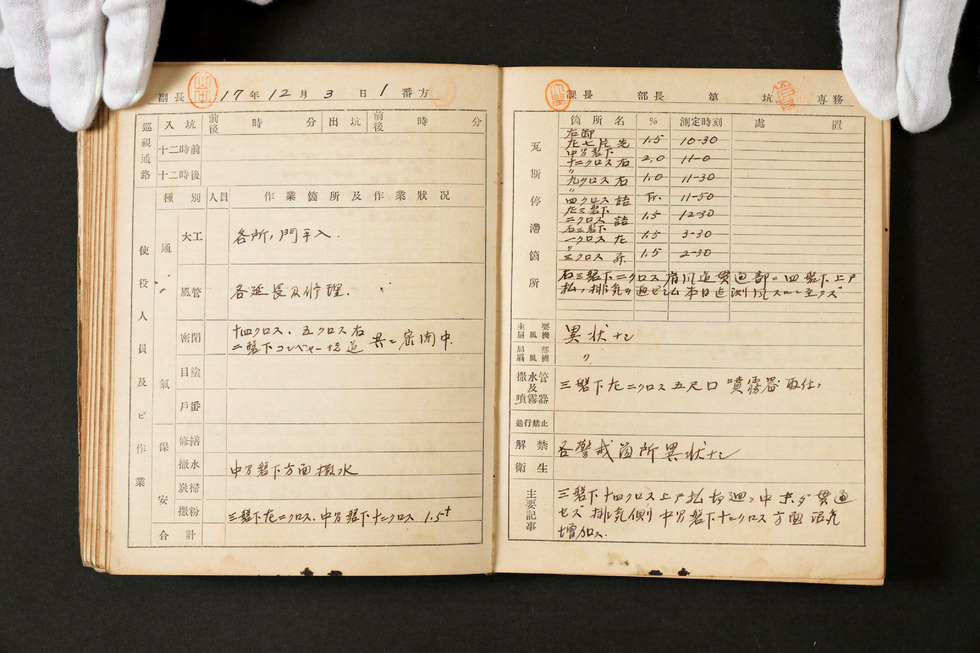 副長 17年12月3日1番方
巡視通路 入坑 前後 時 分 出坑 前後 時 分
十二時前
十二時後
使役人員及ビ作業
種別 人員 作業箇所及作業狀況
通氣
大工 各所ノ門手入.
風管 各延長及修理.
密閉 十四クロス、五クロス右
二盤下コンベヤー坑道 共ニ密閉中.
目塗
戶番
保安
修繕
撒水 中央盤下方面撒水
炭掃
撒粉 三盤下左二クロス、中央盤下十二クロス 1.5t
合計
課長 部長 第 坑 専務
瓦斯停滯箇所
箇所名 % 測定時刻 處置
右卸
左七片先 1.5 10-30
中央盤下
十二クロス右 2.0 11-0
〃
九クロス右 1.0 11-30
〃
四クロス詰 Tr. 11-50
左三盤下
二クロス詰 1.5 12-30
右三盤下
一クロス左 1.5 3-30
〃
三クロス 1.5 2-30
主要扇風機 異狀ナシ
局部扇風機 〃
撒水管及噴霧器 三盤下左二クロス五尺口噴霧器
進行禁止
解禁 各警戒箇所異狀ナシ
衛生
主要記事
三盤下十四クロス上戸払
セズ 排気側 中央盤下十二クロス方面
增加ス.